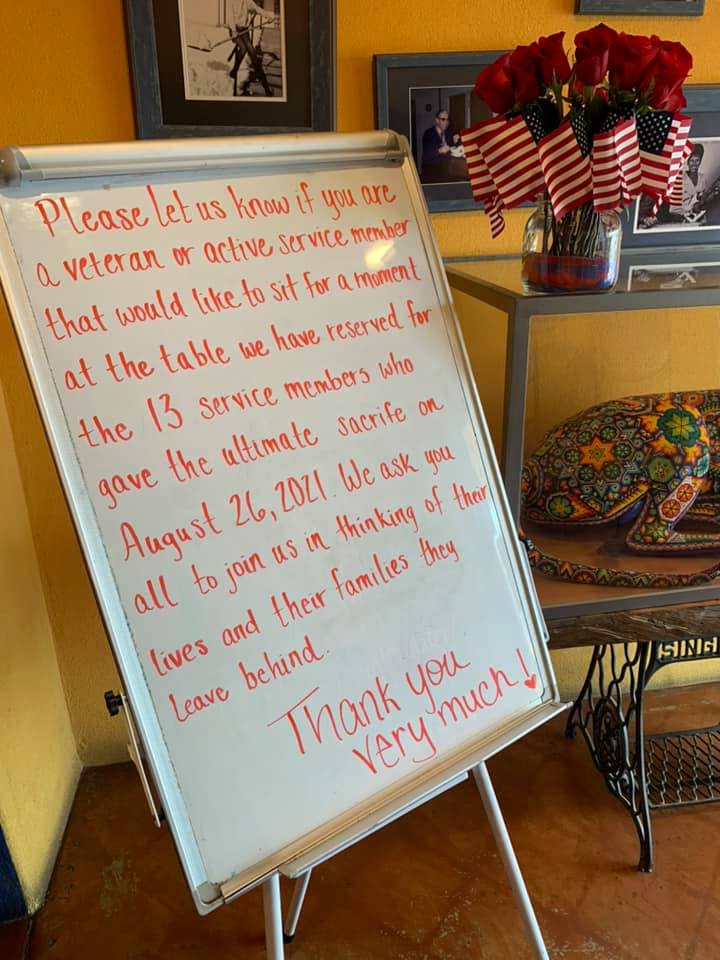 Please let us know if you are
a veteran or active service member
that would like to sit for a moment
at the table we have reserved for
the 13 service members who
gave the ultimate sacrife on
August 26, 2021. We ask you
all to join us in thinking of their
lives and their families they
leave behind.
Thank you
very much!
SING